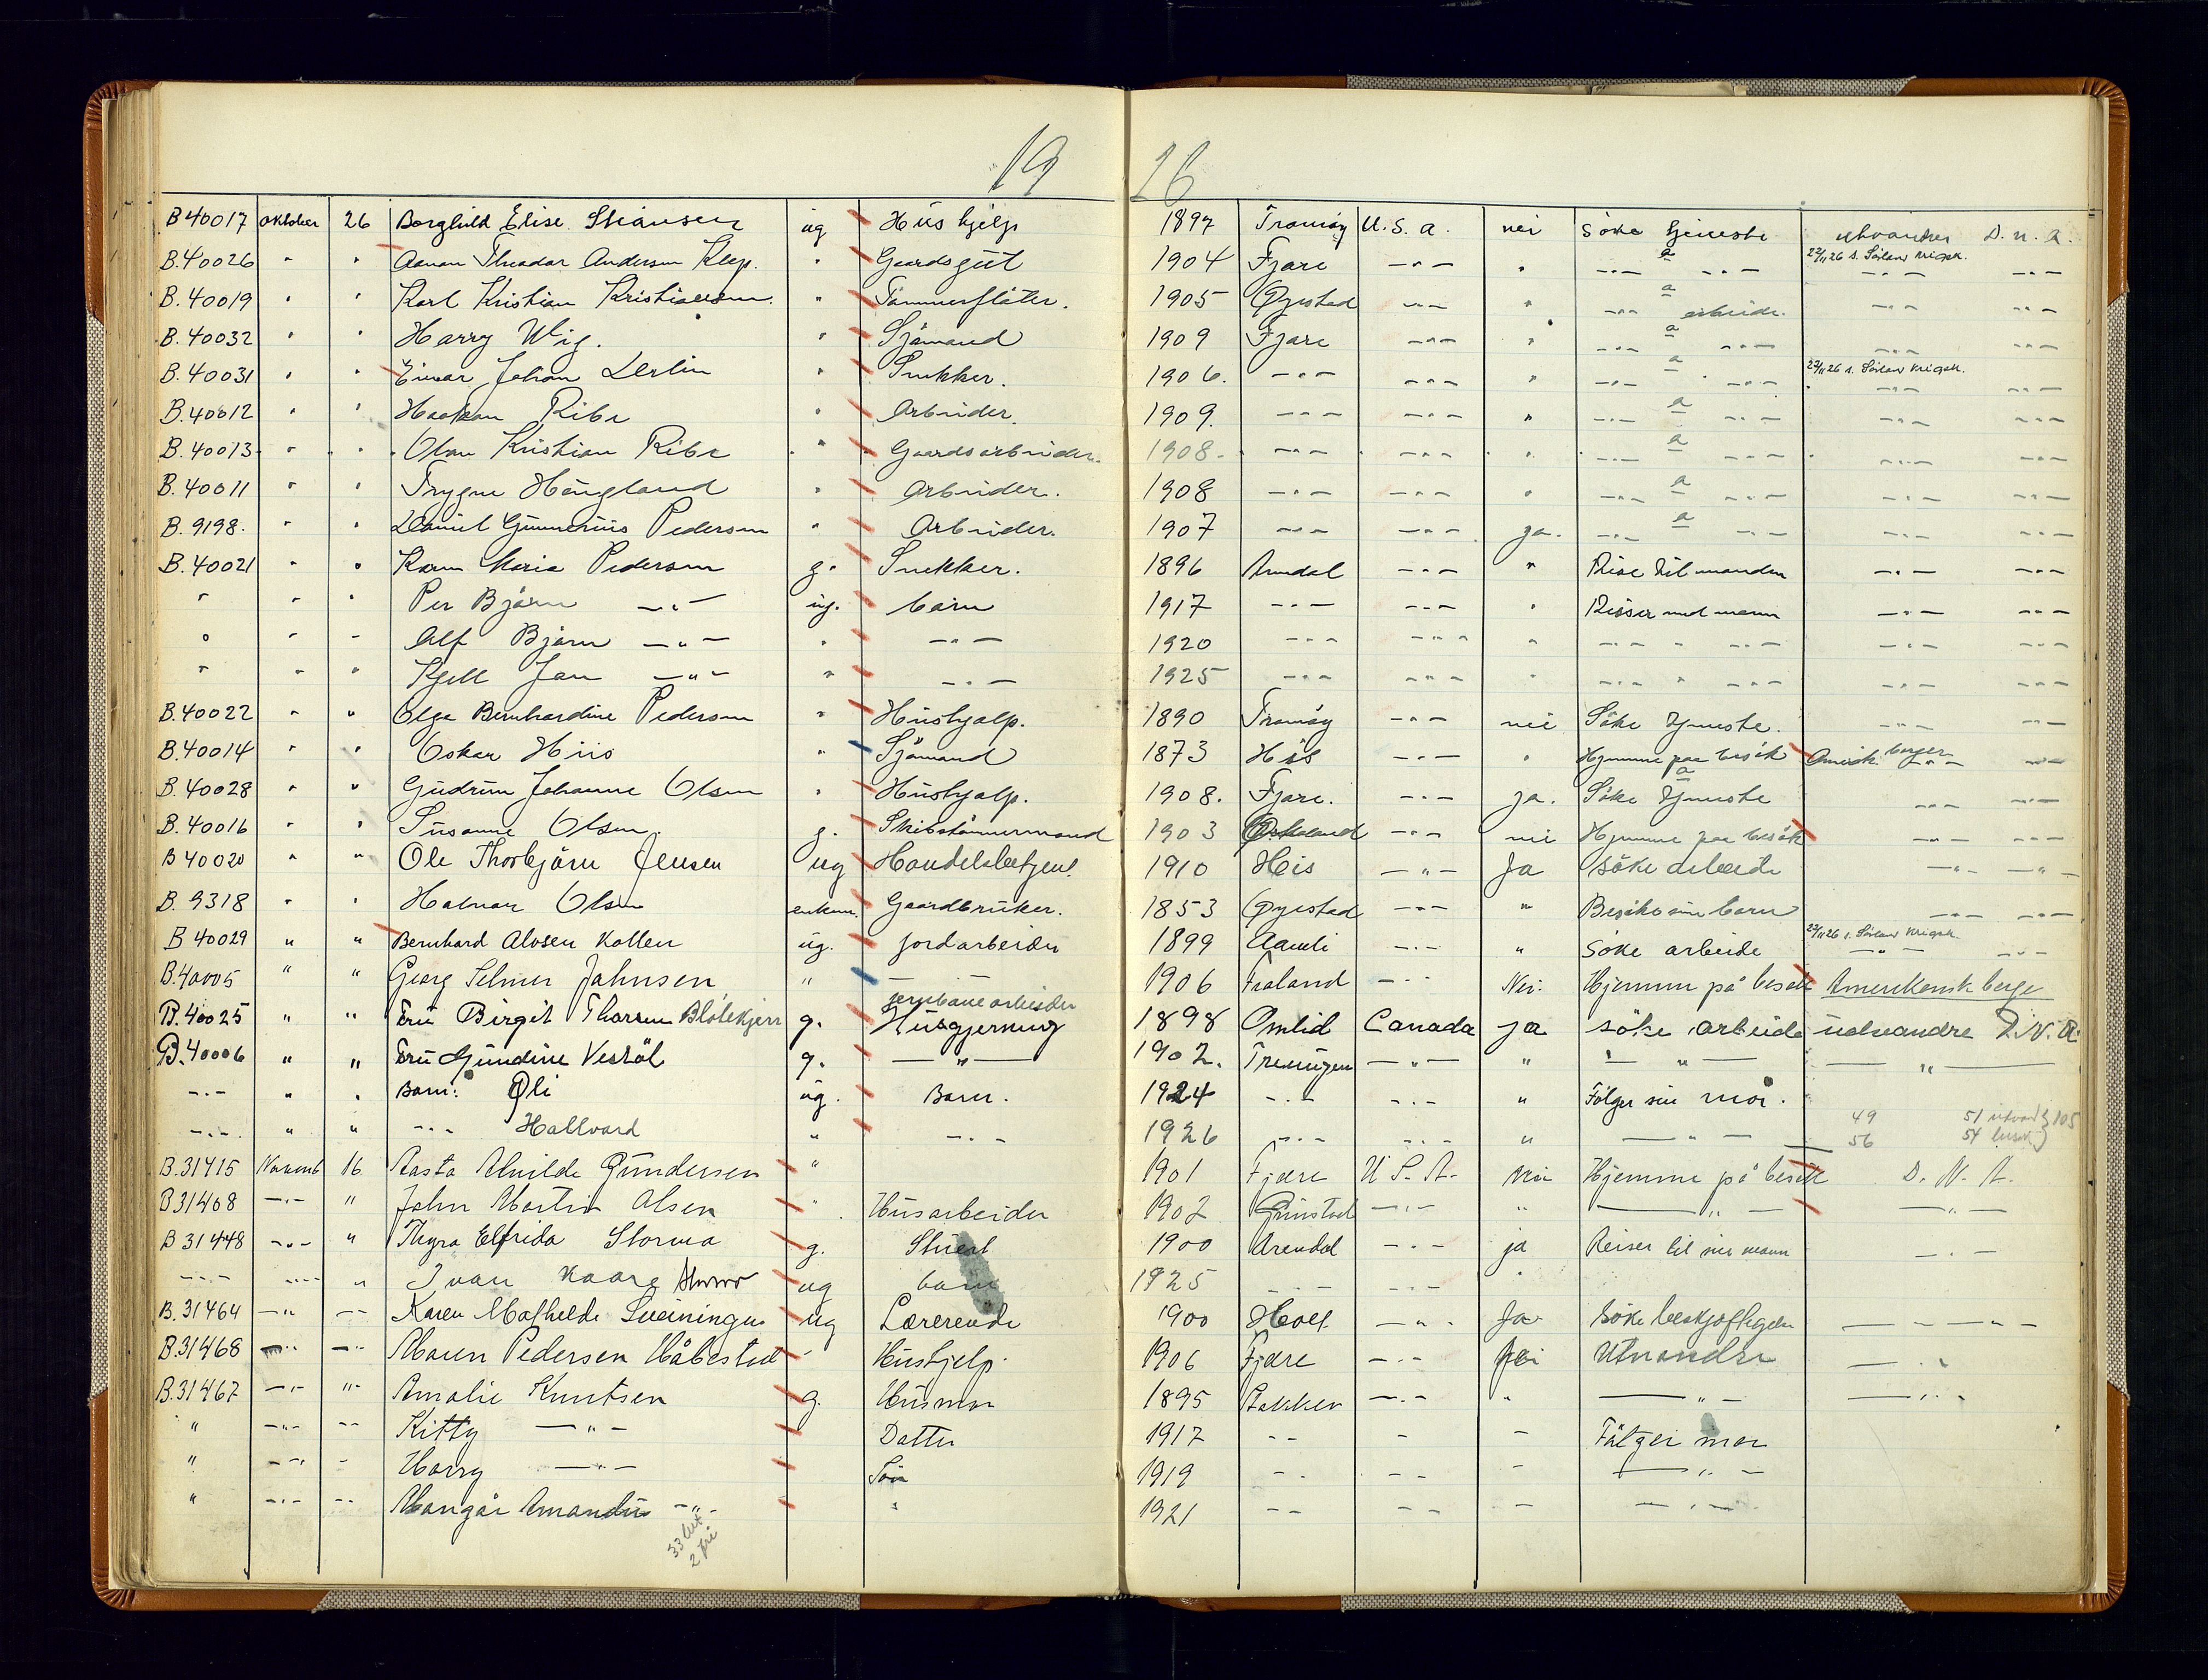 19 26
B 40017 Oktober 26 Borghild Elise ug Hus hjelp 1897 Tromöy U.S.A. nei söke tjeneste utvandrer D.N.A.
B.40026 " " Theodor Andersen Klep. " Gaardsgut 1904 Fjære -"- " -"- a -"- 29/11 26 -"- -"-
B.40019 " " Karl Kristian Kristiansen. " Tömmerflöter. 1905 Öyestad -"- " -"- a arbeide. -"- -"-
B.40032 " " Harry Wig. " Sjömand 1909 Fjære -"- " -"- a -"- -"- -"-
B.40031 " " Einar Johan " Snekker. 1906. -"- -"- " -"- a -"- 29/11 26 -"- -"-
B.40012 " " Haakon Ribe " Arbeider. 1909. -"- -"- " -"- a -"- -"- -"-
B.40013 " " Olav Kristian Ribe " Gaardsarbeider. 1908. -"- -"- " -"- a -"- -"- -"-
B.40011 " " Trygve Haugland " Arbeider. 1908 -"- -"- " -"- a -"- -"- -"-
B.9198. " " Daniel Gunnerius Pedersen " Arbeider. 1907 -"- -"- ja. -"- a -"- -"- -"-
B.40021 " " Karen Marie Pedersen g. Snekker. 1896 Arendal -"- " Reise til manden -"- -"-
" " " Per Björn -"- ug. barn 1917 -"- -"- " Reiser med moren -"- -"-
" " " Alf Bjarn -"- " -"- 1920 -"- -"- " -"- " -"- -"- -"-
" " " Kjell Jan -"- " -"- 1925 -"- -"- " -"- " -"- -"- -"-
B.40022 " " Olga Bernhardine Pedersen " Hushjælp. 1890 Tromöy -"- nei Söke tjeneste. -"- -"-
B.40014 " " Oskar Hiis " Sjömand 1873 His -"- " Hjemme paa besök Amrik. borger -"- -"-
B.40028 " " Gudrun Johanne Olsen " Hushjælp. 1908. Fjære. -"- ja. a Söke tjeneste -"- -"-
B.40016 " " Susanne Olsen. g. Skibstömmermand 1903 -"- nei Hjemme paa besök -"- -"-
B 40020 " " Ole Thorbjörn Jensen ug Handelsbetjent. 1910 His -"- Ja söke arbeide -"- -"-
B.9318 " " Halvar Olsen enkem. Gaardbruker. 1853 Öyestad -"- " Besöke sin barn -"- -"-
B 40029 " " Bernhard Alvsen Kallen ug. Jordarbeider 1899 Aamli -"- " söke arbeide 29/11 26 -"- -"-
B.40005 " " Georg Selmer Jahnsen " jernbanearbeider 1906 Froland -"- Nei. Hjemme på besök Amerikansk borge
B.40025 " " Fru Birgit Tharsen Blötekjerr g. Husgjerning 1898 Omlid Canada ja söke arbeide udvandre D.N.A.
B.40006 " " Fru Gundine Vestöl g. -"- 1902. Treungen -"- " -"- -"-
-"- " " Barn: Oli ug. Barn. 1924 -"- -"- " Fölger sin mor.
-"- " " -"- Hallvard " -"- 1926 -"- -"- " -"- 49 56 51 54 105
B.31415 Novemb 16 Aasta Alvilde Gundersen " 1901 Fjære U.S.A. Nei Hjemme på besök D.N.A.
B 31408 -"- " John Martin Olsen " Husarbeider 1902 Grimstad -"- " -"- -"-
B 31448 -"- " Thyra Elfrida Storma g. 1900 Arendal -"- ja Reiser til sin mann -"-
-"- -"- " Ivan Kaare ug barn 1925 -"- -"- "
B.31464 -"- -"- Karen Mathilde ug Lærerinde 1900 Holt -"- Ja söke -"-
B.31468 -"- -"- Maren Pedersen Håbestad " Hushjelp. 1906 Fjære -"- Utvandre -"-
B.31467 -"- " Amalie Knutsen g. Husmor 1895 Bakken -"- " -"- -"-
" -"- -"- Kitty -"- Datter 1917 -"- - - Fölger mor
" -"- - Harry -"- Sön 1919 -"- -"- - -"-
" -"- -"- Amandus -"- " 1921 -"- -"- - -"-
33
2